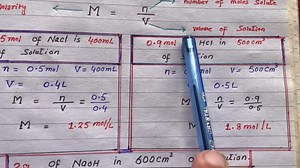 Molarity
M = n/V
number of moles Solute
volume of Solution
5mol of Nacl is 400mL
of Solution
n = 0.5mol V = 400mL
V = 0.4L
M = n/V = 0.5/0.4
M = 1.25 mol/L
0.9mol HCl in 500cm³
of
n = V = 500cm³
0.5L
M = n/V = 0.9/0.5
M = 1.8 mol/L
of NaOH in 600cm³